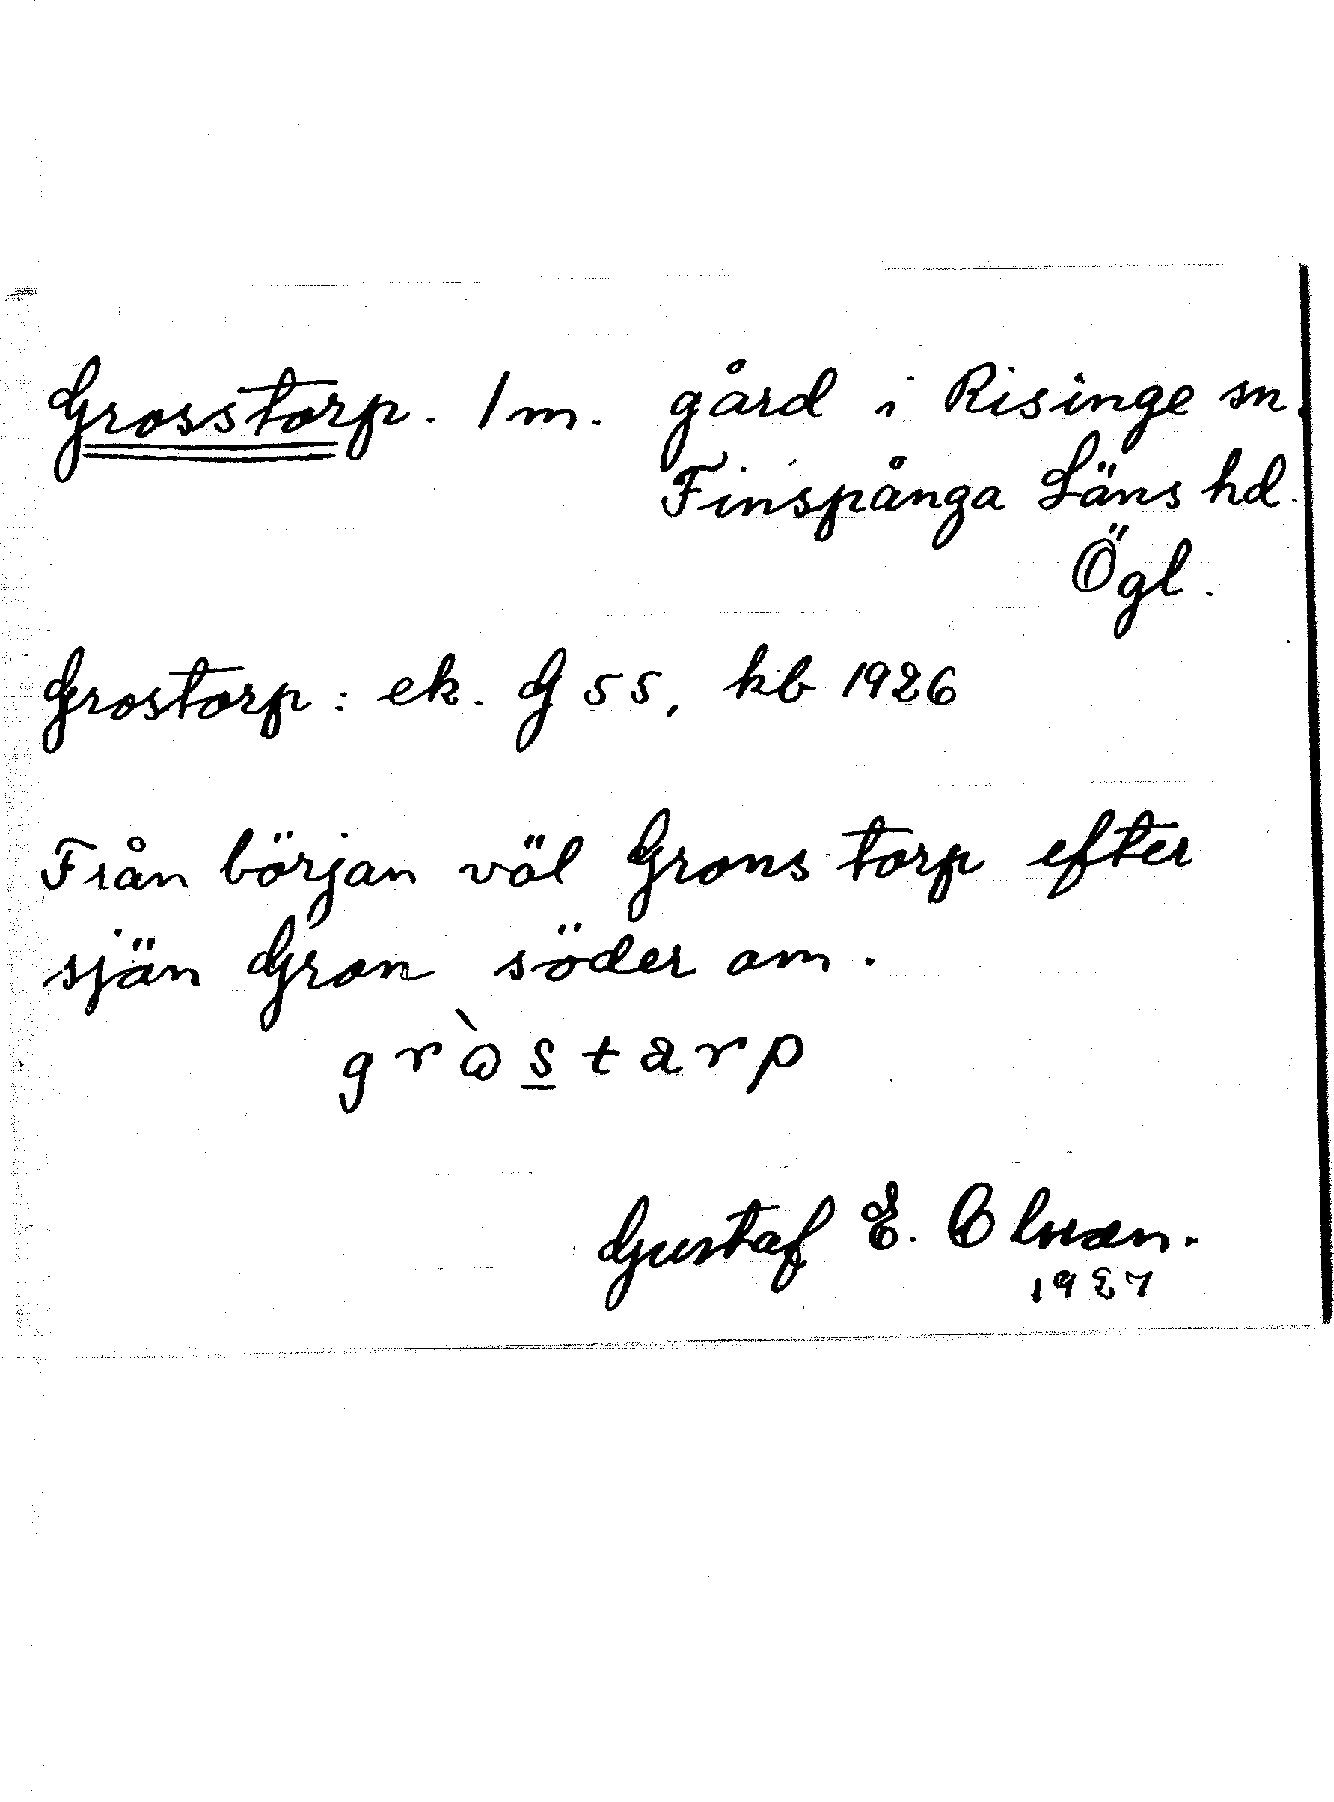 Grosstorp. 1 m. gård i Risinge sn.
Finspånga Läns hd.
Ögl.
Grostorp: ek. G 55, kb 1926
Från början väl Grons torp efter
sjön Gron söder om.
gròstarp
Gustaf E. Olsson.
1927